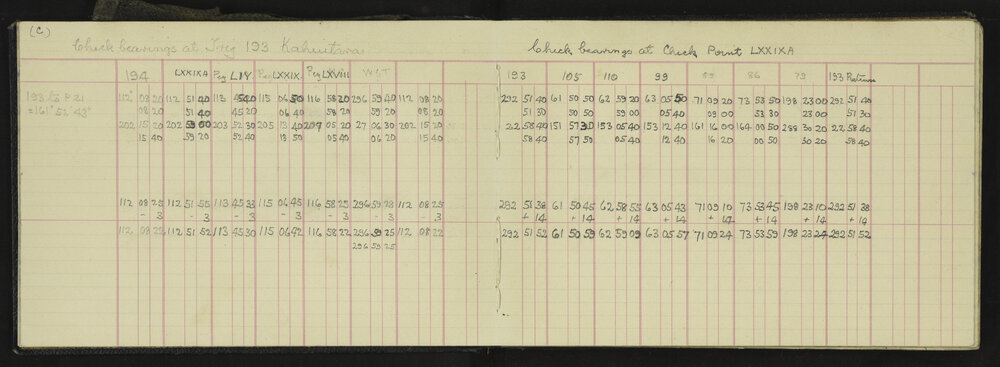 (C)
Check bearings at Trig 193 Kahuitara
194 LXXIXA Peg LIV Peg LXXIX Peg LXVIII WST
193 to P 21 112° 08 20 112 51 40 113 45 40 115 06 50 116 58 20 296 59 40 112 08 20
= 161° 52' 43" 08 20 51 40 45 20 06 40 58 20 59 20 08 20
202 15 20 202 59 00 203 52 30 205 13 40 207 05 20 27 06 30 202 15 20
15 40 59 20 52 40 13 50 05 40 06 20 15 40
112 08 25 112 51 55 113 45 33 115 06 45 116 58 25 296 59 28 112 08 25
- 3 - 3 - 3 - 3 - 3 - 3 - 3
112 08 22 112 51 52 113 45 30 115 06 42 116 58 22 296 59 25 112 08 22
296 59 25
Check bearings at Check Point LXXIXA
193 105 110 99 86 79 193 Return
292 51 40 61 50 50 62 59 20 63 05 50 71 09 20 73 53 50 198 23 00 292 51 40
51 30 50 50 59 00 05 40 09 00 53 30 23 00 51 30
22 58 40 151 57 30 153 05 40 153 12 40 161 16 00 164 00 50 288 30 20 22 58 40
58 40 57 50 05 40 12 40 16 20 00 50 30 20 58 40
292 51 38 61 50 45 62 58 55 63 05 43 71 09 10 73 53 45 198 23 10 292 51 38
+ 14 + 14 + 14 + 14 + 14 + 14 + 14 + 14
292 51 52 61 50 59 62 59 09 63 05 57 71 09 24 73 53 59 198 23 24 292 51 52